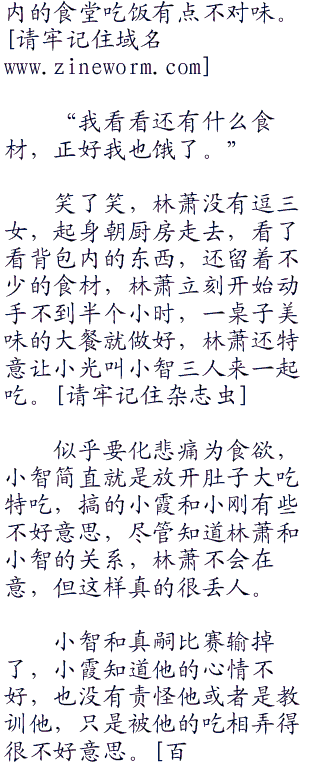 内的食堂吃饭有点不对味。
[请牢记住域名
www.zineworm.com]
“我看看还有什么食
材，正好我也饿了。”
笑了笑，林萧没有逗三
女，起身朝厨房走去，看了
看背包内的东西，还留着不
少的食材，林萧立刻开始动
手不到半个小时，一桌子美
味的大餐就做好，林萧还特
意让小光叫小智三人来一起
吃。[请牢记住杂志虫]
似乎要化悲痛为食欲，
小智简直就是放开肚子大吃
特吃，搞的小霞和小刚有些
不好意思，尽管知道林萧和
小智的关系，林萧不会在
意，但这样真的很丢人。
小智和真嗣比赛输掉
了，小霞知道他的心情不
好，也没有责怪他或者是教
训他，只是被他的吃相弄得
很不好意思。[百